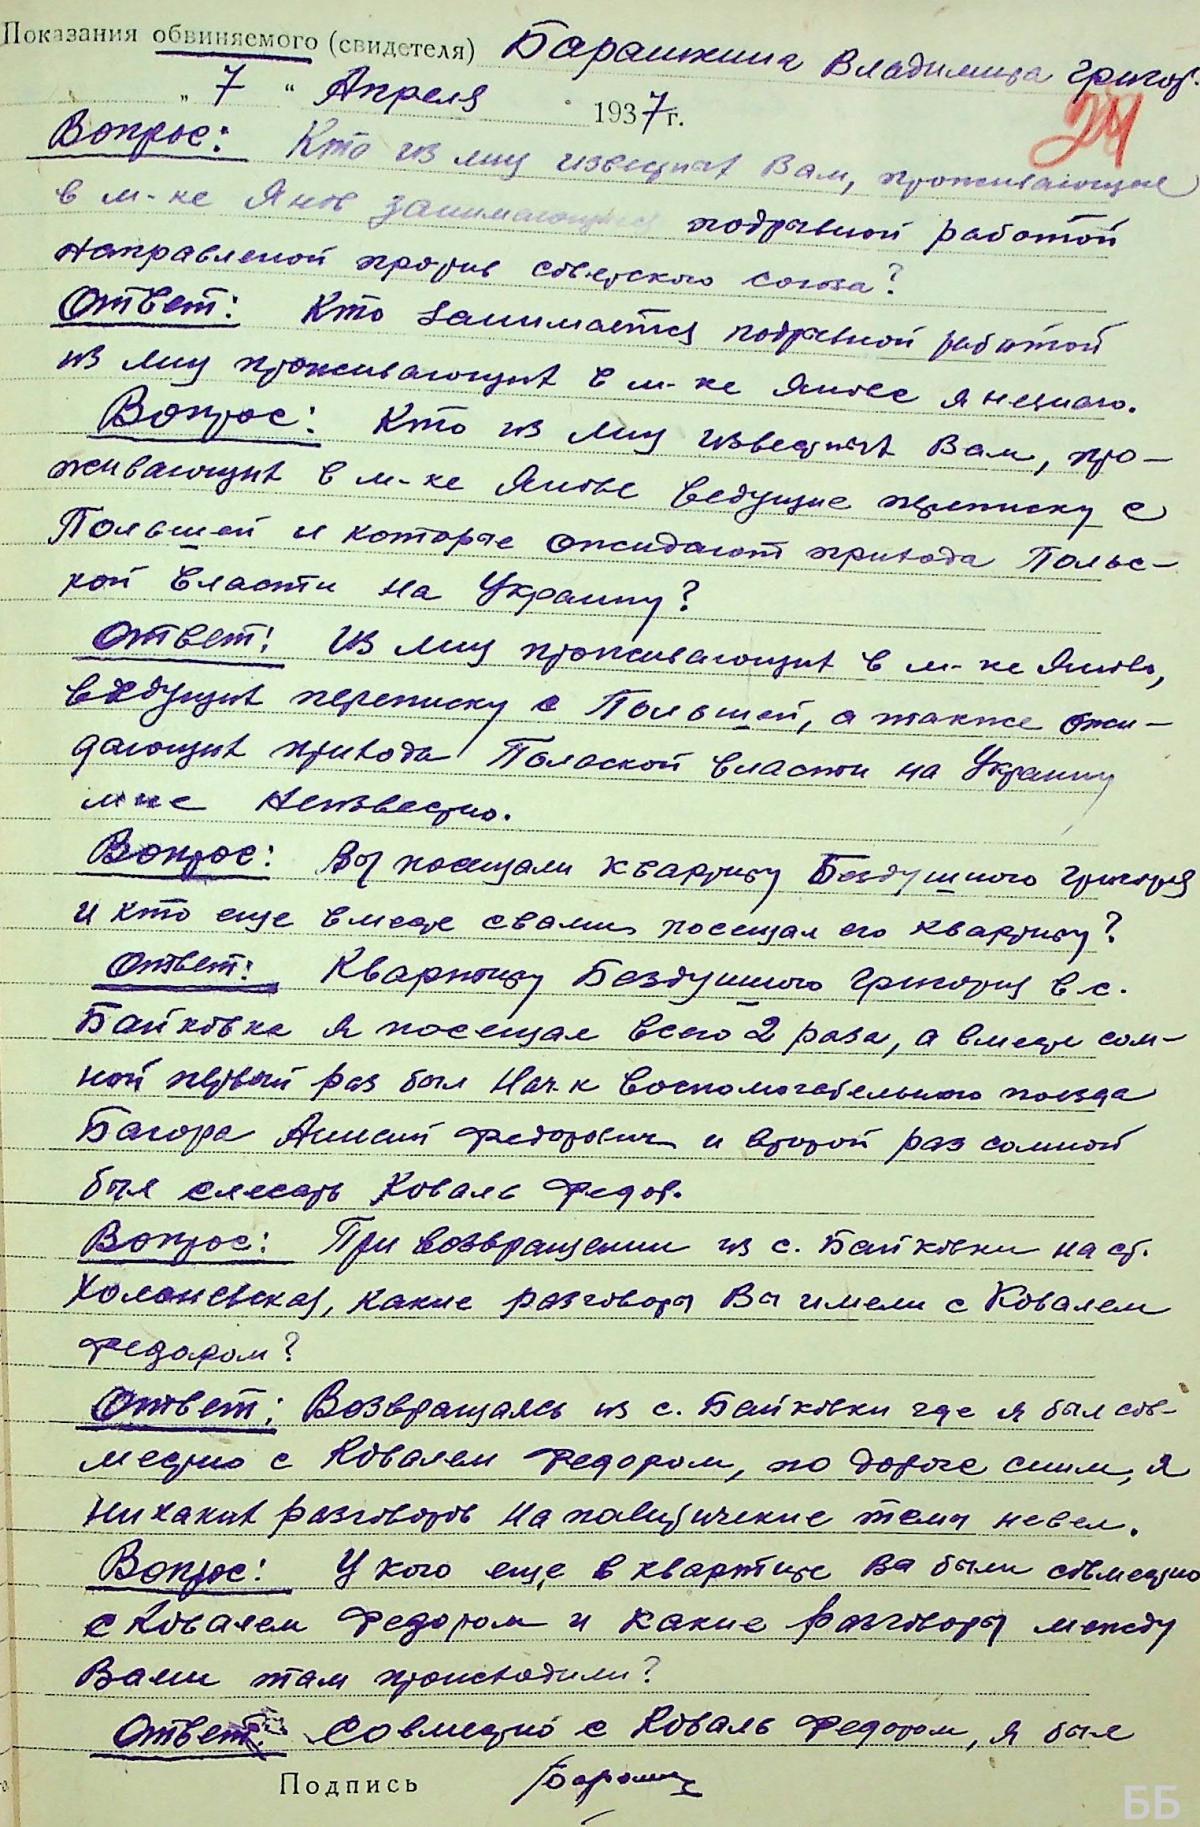 Показания обвиняемого (свидетеля) Барашкина Владимира Григор.
„ 7 “ Апреля 1937 г.
24
Вопрос: Кто из лиц известных Вам, проживающие
в м-ке Янов занимающиеся подрывной работой
направленой против советского союза?
Ответ: Кто занимается подрывной работой
из лиц проживающих в м-ке Янове я незнаю.
Вопрос: Кто из лиц известных Вам, про-
живающих в м-ке Янове ведущие переписку с
Польшей и которые ожидают прихода Польс-
кой власти на Украину?
Ответ: Из лиц проживающих в м-ке Янове,
ведущих переписку с Польшей, а также ожи-
дающих прихода Польской власти на Украину
мне неизвестно.
Вопрос: Вы посещали квартиру Бездушного Григория
и кто еще вместе свами посещал его квартиру?
Ответ: Квартиру Бездушного Григория в с.
Байковке я посещал всего 2 раза, а вместе сом-
ной первый раз был Нач-к воспомогательного поезда
Багора Федорович и второй раз сомной
был слесарь Коваль Федор.
Вопрос: При возвращении из с. Байковки на ст.
Холоневская, какие разговоры Вы имели с Ковалем
Федором?
Ответ: Возвращаясь из с. Байковки где я был сов-
местно с Ковалем Федором, по дороге сним, я
никаких разговоров на политические темы невел.
Вопрос: У кого еще в квартире Вы были совместно
с Ковалем Федором и какие разговоры между
Вами там происходили?
Ответ: Совместно с Коваль Федором, я был
Подпись
ББ